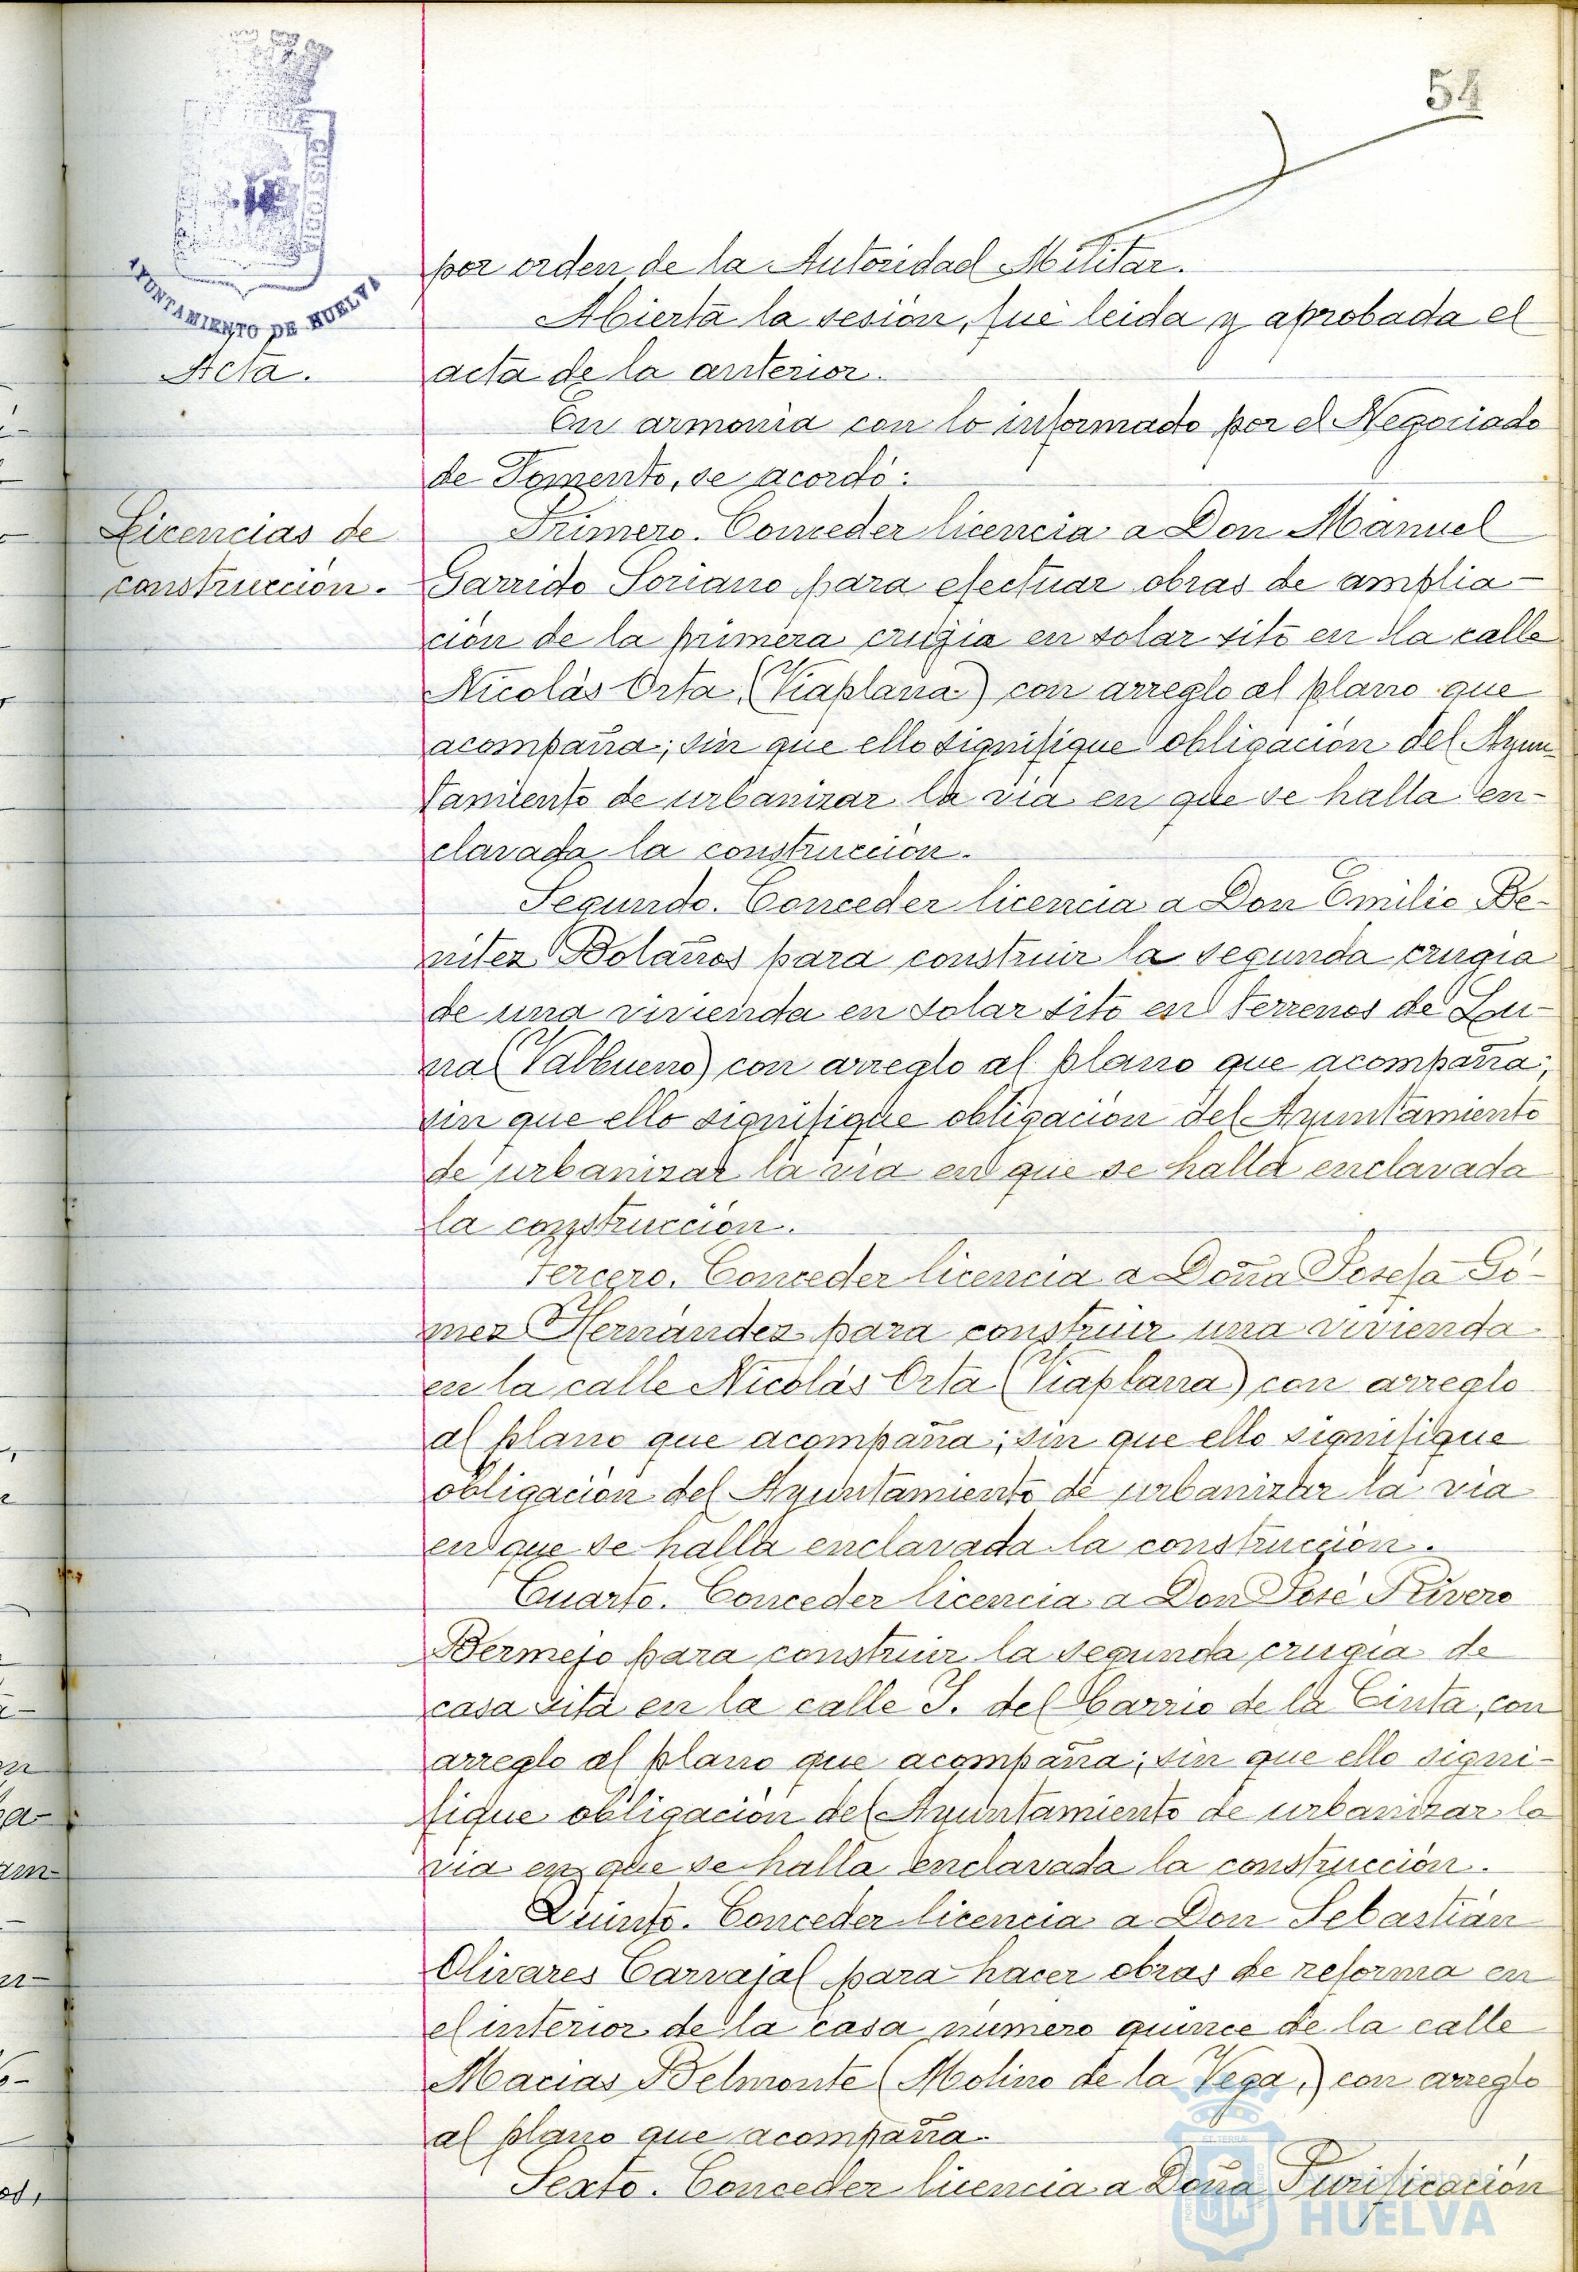 54
AYUNTAMIENTO DE HUELVA
por orden de la Autoridad Militar.
Abierta la sesión, fué leida y aprobada el
Acta.
acta de la anterior.
En armonia con lo informado por el Negociado
de Fomento, se acordó:
Licencias de
construcción.
Primero. Conceder licencia a Don Manuel
Garrido Soriano para efectuar obras de amplia-
ción de la primera crugia en solar sito en la calle
Nicolás Orta (Viaplana) con arreglo al plano que
acompaña; sin que ello signifique obligación del Ayun-
tamiento de urbanizar la via en que se halla en-
clavada la construcción.
Segundo. Conceder licencia a Don Emilio Be-
nitez Bolaños para construir la segunda crugia
de una vivienda en solar sito en terrenos de Lu-
na (Valbueno) con arreglo al plano que acompaña;
sin que ello signifique obligación del Ayuntamiento
de urbanizar la via en que se halla enclavada
la construcción.
Tercero. Conceder licencia a Doña Josefa Gó-
mez Hernández para construir una vivienda
en la calle Nicolás Orta (Viaplana) con arreglo
al plano que acompaña; sin que ello signifique
obligación del Ayuntamiento de urbanizar la via
en que se halla enclavada la construcción.
Cuarto. Conceder licencia a Don José Rivero
Bermejo para construir la segunda crugia de
casa sita en la calle J. del barrio de la Cinta, con
arreglo al plano que acompaña; sin que ello signi-
fique obligación del Ayuntamiento de urbanizar la
via en que se halla enclavada la construcción.
Quinto. Conceder licencia a Don Sebastián
Olivares Carvajal para hacer obras de reforma en
el interior de la casa número quince de la calle
Macias Belmonte (Molino de la Vega,) con arreglo
al plano que acompaña.
Sexto. Conceder licencia a Doña Purificación
HUELVA